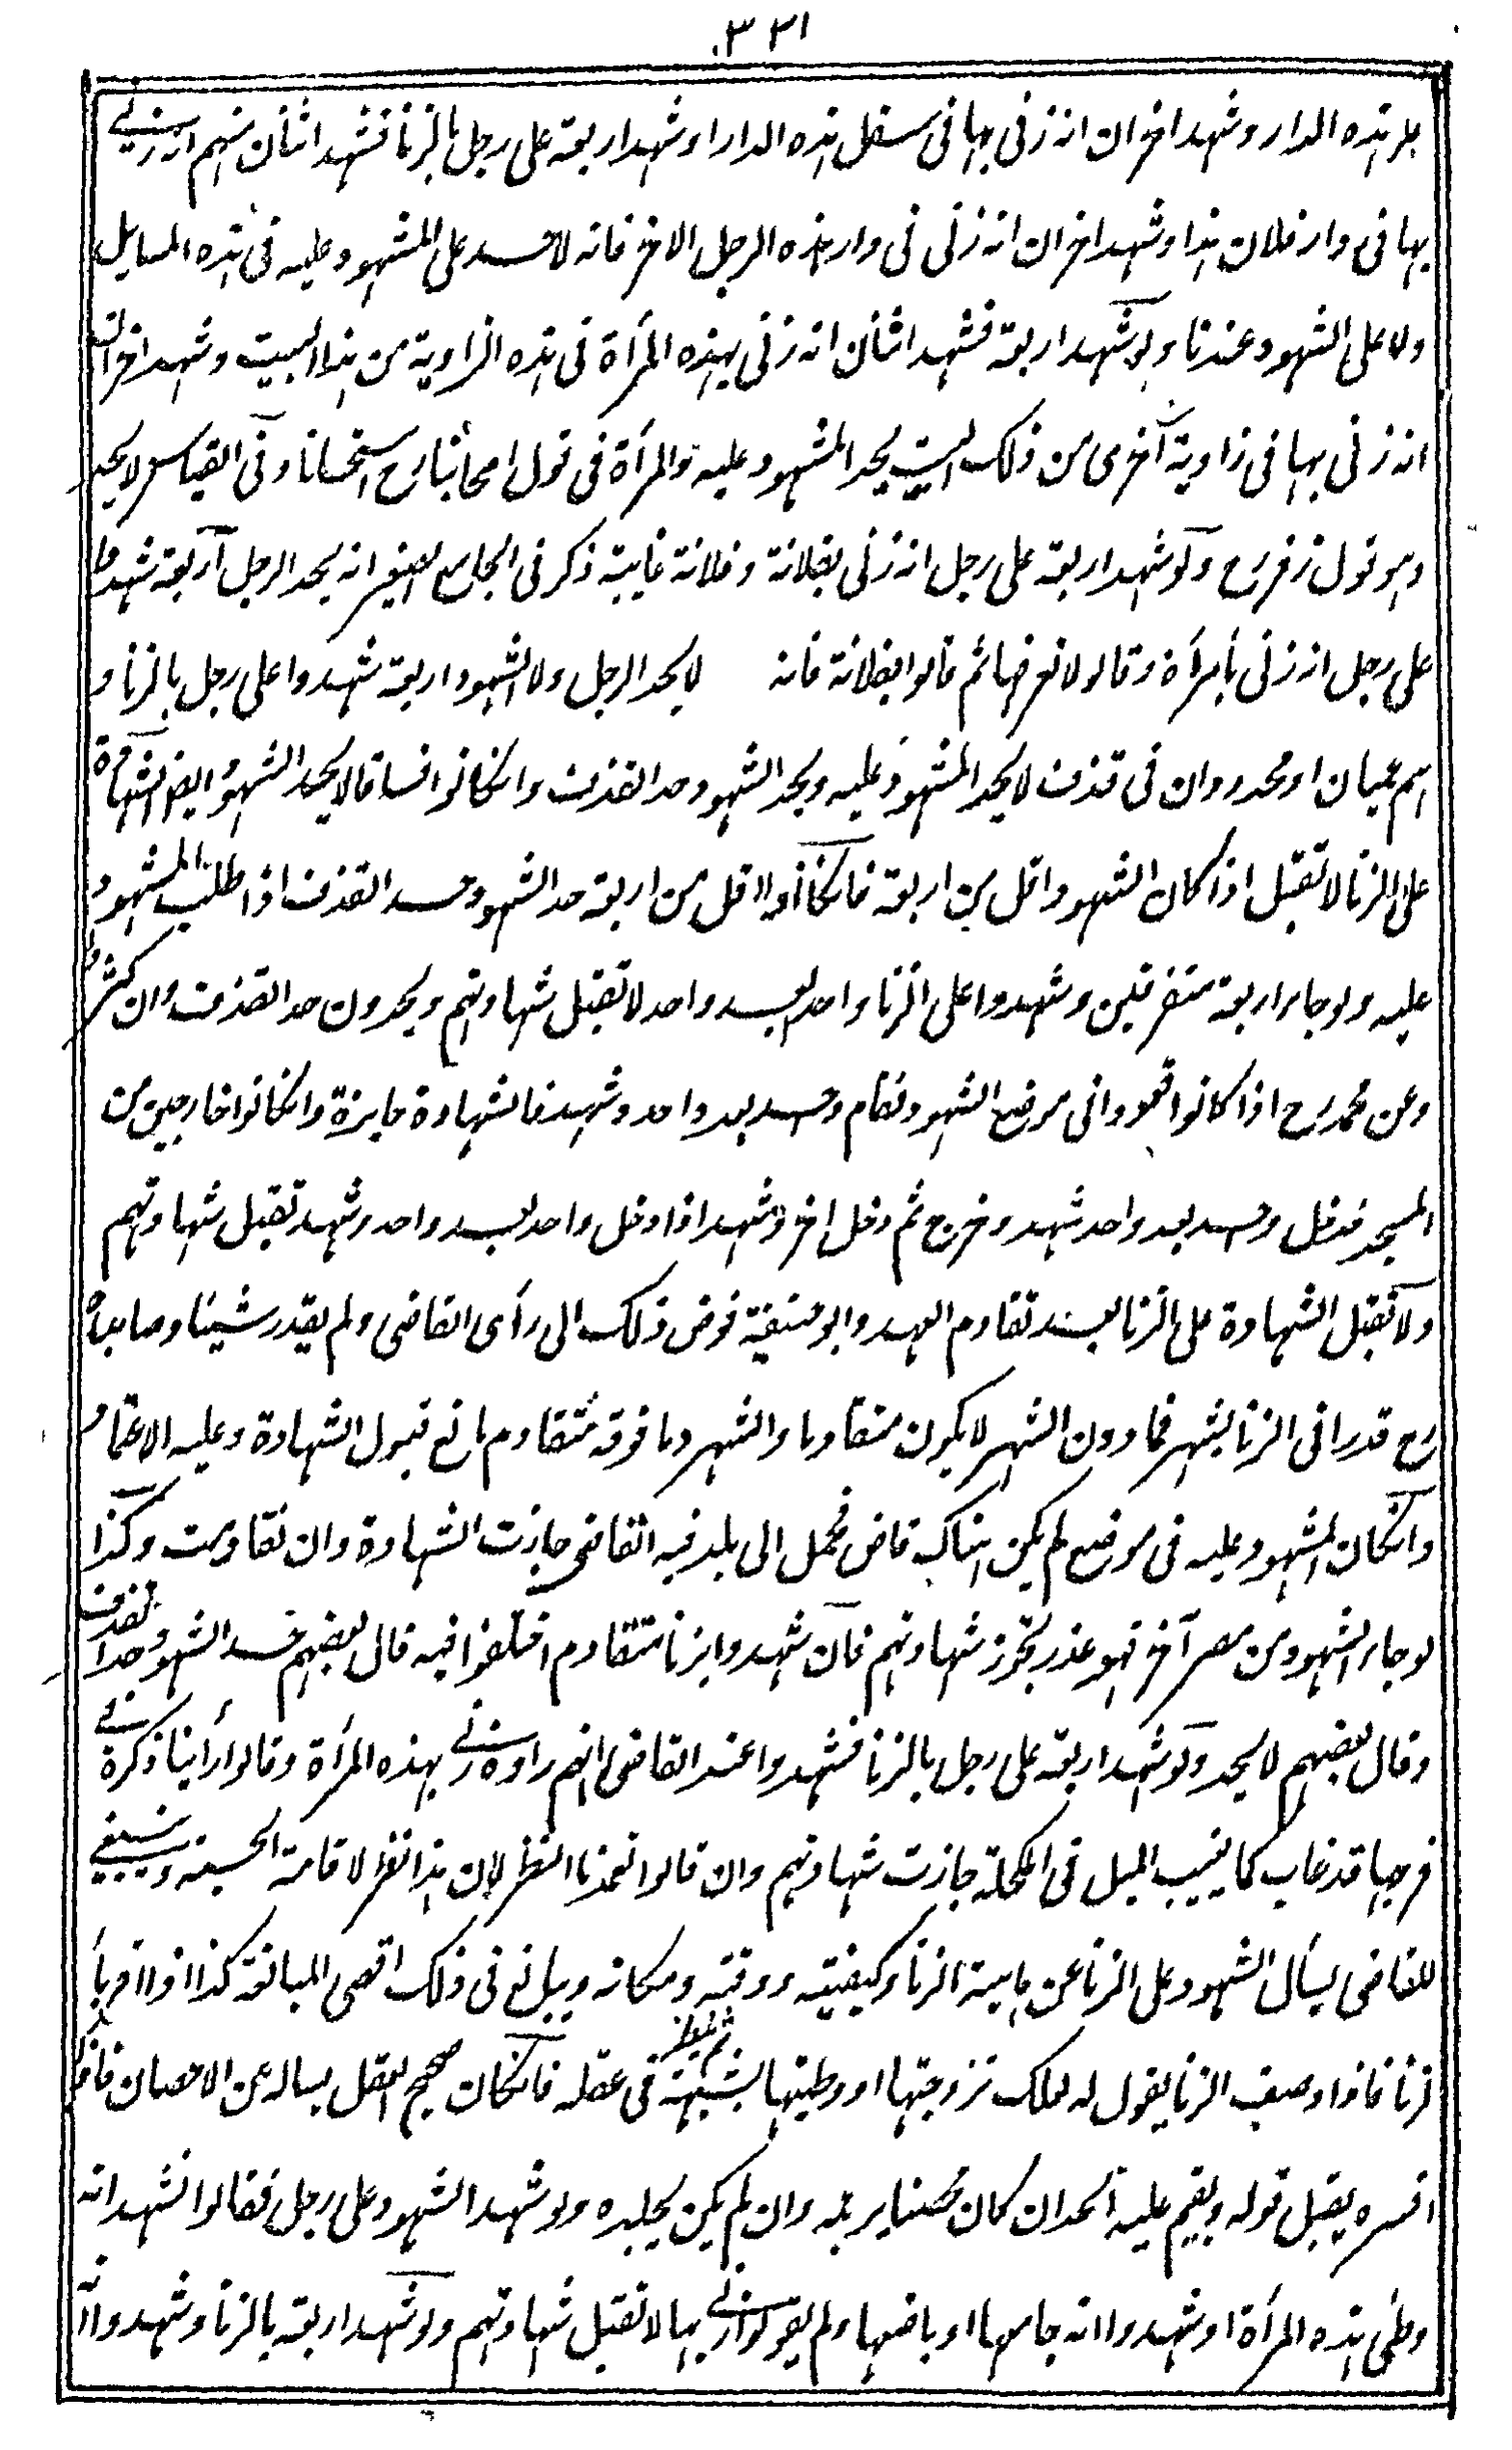 ٣٢١
علو هذه الدار وشهد اخران انه زنى بها فى سفل هذه الدار او شهد اربعة على رجل بالزنا فشهد اثنان منهم انه زنى
بها فى دار فلان هذا وشهد اخران انه زنى فى دار هذه الرجل الاخر فانه لا حد على المشهود عليه فى هذه المسايل
ولا على الشهود عندنا ولو شهد اربعة فشهد اثنان انه زنى بهذه المرأة فى هذه الزاوية من هذا البيت وشهد اخران
انه زنى بها فى زاوية اخرى من ذلك البيت يحد المشهود عليه والمرأة فى قول اصحابنا رح استحسانا وفى القياس لا يحد
وهو قول زفر رح ولو شهد اربعة على رجل انه زنى بفلانة وفلانة غايبة ذكر فى الجامع الصغير انه يحد الرجل اربعة شهدوا
على رجل انه زنى بأمرأة وقالو لا نعرفها ثم قالوا بفلانة فانه لا يحد الرجل ولا الشهود اربعة شهدوا على رجل بالزنا و
هم عميان او محدودان فى قذف لا يحد المشهود عليه ويحد الشهود حد القذف وانكانوا فساقا لا يحد الشهود ايضا الشهادة
على الزنا لا تقبل اذا كان الشهود اقل من اربعة فانكانوا اقل من اربعة حد الشهود حد القذف اذا طلب المشهود
عليه ولو جاء اربعة متفرقين وشهدوا على الزنا واحد بعد واحد لا تقبل شهادتهم ويحدون حد القذف وان كثروا
وعن محمد رح اذا كانوا قعودا فى موضع الشهود فقام وحد بعد واحد وشهد فالشهادة جايزة وانكانوا خارجين من
المسجد فدخل وحد بعد واحد شهد وخرج ثم دخل اخر وشهد اذا دخل واحد بعد واحد وشهد تقبل شهادتهم
ولا تقبل الشهادة على الزنا بعد تقادم العهد وابو حنيفة فوض ذلك الى رأى القاضى ولم يقدر شيئا وصاحباه
رح قدرا فى الزنا بشهر فما دون الشهر لا يكون متقادما والشهر وما فوقه متقادم مانع قبول الشهادة وعليه الاعتماد
وانكان المشهود عليه فى موضع لم يكن هناك قاض فحمل الى بلد فيه القاضى جازت الشهادة وان تقادمت وكذا
لو جاء الشهود من مصر آخر فهو عذر تجوز شهادتهم فان شهدوا بزنا متقادم اختلفوا فيه قال بعضهم يحد الشهود حد القذف
وقال بعضهم لا يحد ولو شهد اربعة على رجل بالزنا فشهدوا عند القاضى انهم راوه زنى بهذه المرأة وقالوا رأينا ذكره فى
فرجها قد غاب كما يغيب الميل فى المكحلة جازت شهادتهم وان قالوا تعمدنا النظر لان هذا نظر لاقامة الحسبة وينبغى
للقاضى يسأل الشهود على الزنا عن ماهية الزنا وكيفيته ووقته ومكانه ويبالغ فى ذلك اقصى المبالغة كذا اذا اقر بأ
لزنا فاذا وصف الزنا يقول له لعلك تزوجتها او وطيتها بشبهة ثم ينظر فى عقله فانكان صحيح العقل يساله عن الاحصان فاذا
افسره يقبل قوله ويقيم عليه الحد ان كان محصنا يرجمه وان لم يكن يجلده ولو شهد الشهود على رجل فقالوا نشهد انه
وطى هذه المرأة او شهدوا انه جامعها او باضعها ولم يقولوا زنى بها لا تقبل شهادتهم ولو شهد اربعة بالزنا وشهدوا ا